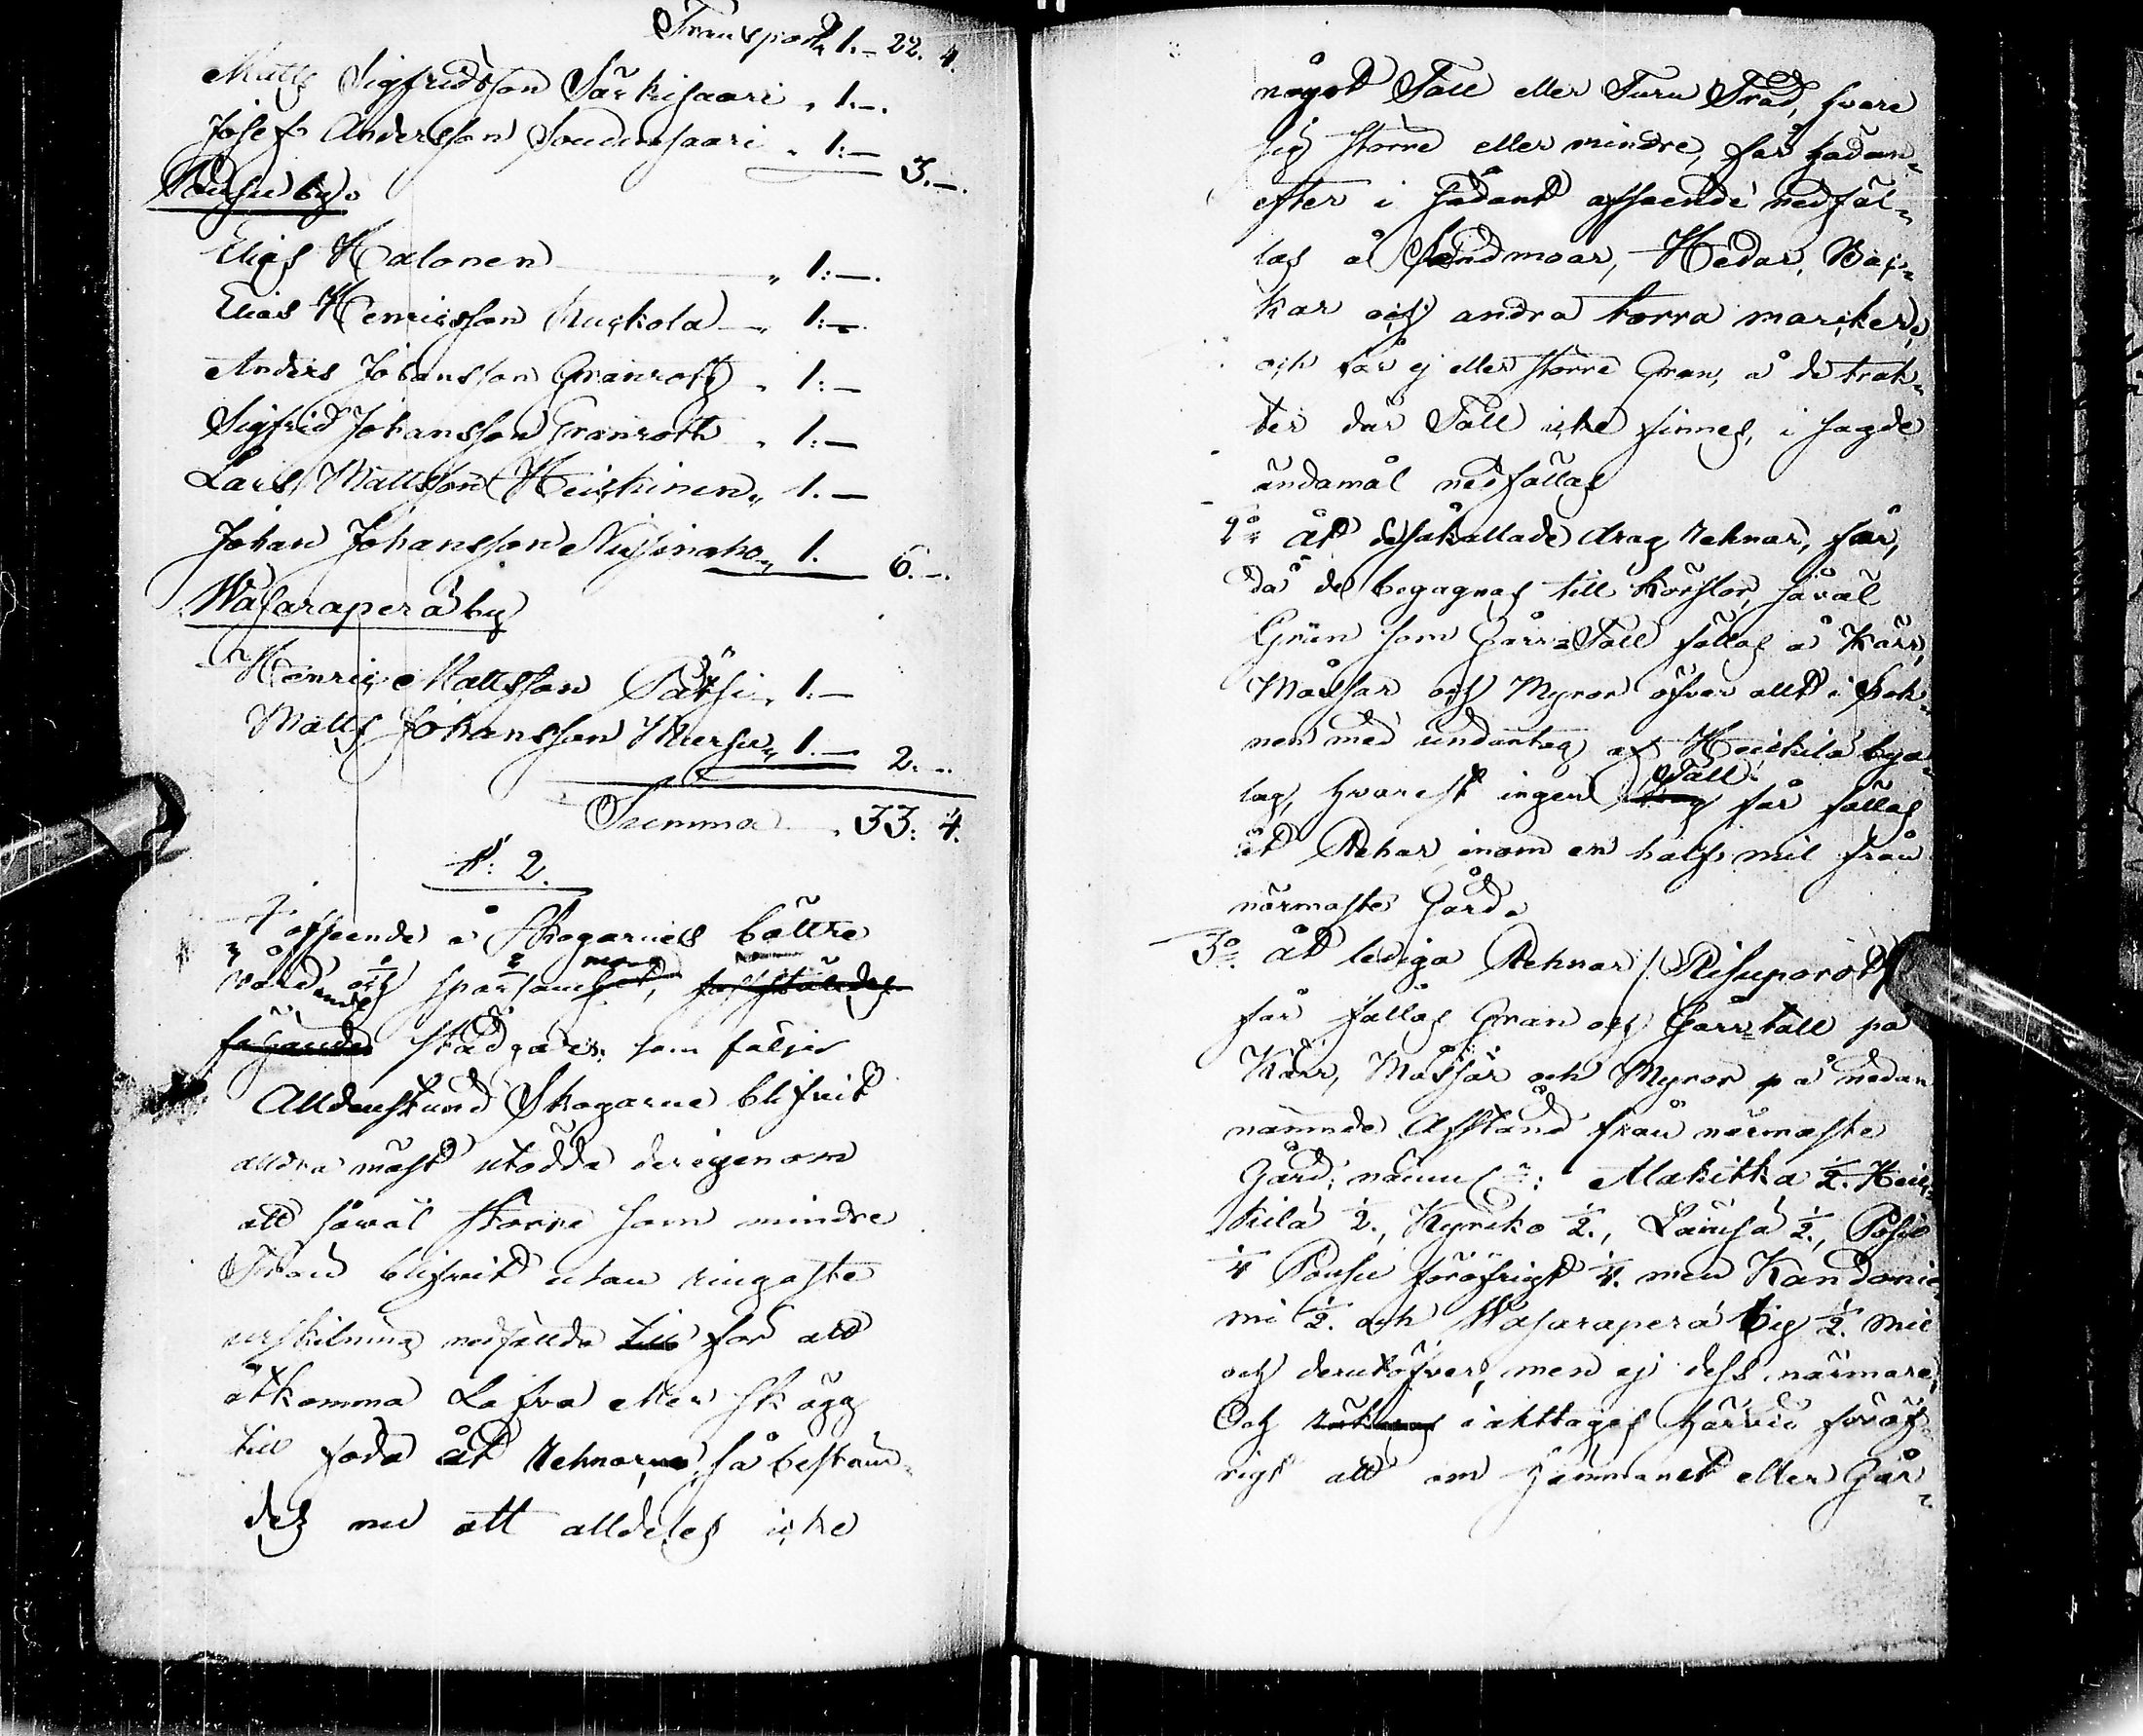 Transport 1.– 22. 4.
Matts Sigfridsson Särkisaari „ 1.–.
Josef Andersson Soudensaari „ 1:– 3.–.
Pousu by.
Elias Halonen „ 1:–.
Elias Henricsson Kuckola „ 1:–.
Anders Johansson Granroth „ 1:–
Sigfrid Johansson Granroth „ 1:–
Lars Mattsson Heiskinen „ 1.–
Johan Johansson Nissinaho „ 1. 6.–.
Wasaraperä by
Henric Mattsson Pätsi „ 1:–
Matts Johansson Kursu „ 1.– 2.–.
Summa „ 33: 4.
§: 2.
I afseende å Skogarnes bättre
vård och sparsam
stadgades som följer
Alldenstund Skogarne blifvit
aldra mäst utödda derigenom
att såväl större som mindre
Träd blifvit utan ringaste
urskilning nedfällda till för att
åtkomma Lafva eller skägg
till föda åt Rehnarne, så bestäm-
des nu att alldeles icke
något Tall eller Furu Träd, vare
sig större eller mindre, får hädan-
efter i sådant afseende nedfäl-
las å Sandmoar, Hedar, Bac-
kar och andra torra marker,
och får ej eller större Gran, å de trak-
ter där Tall icke finnes, i sagde
ändamål nedfällas
2o Åt de såkallade drag Rehnar, får,
då de begagnas till körslor, såväl
Gran som Garr Tall fällas å Kärr,
Måssar och Myror öfver allt i Sok-
nen med undantag af Heikilä bya-
lag, hvarest ingen Tall får fällas
åt Rehnar inom en half mil från
närmaste Gård.
3o. Åt lediga Rehnar /: Risuporot
får fällas Gran och Garr tall på
Kärr, Måssar och Myror på nedan
nämnde Afstånd från närmaste
Gård; näml: Makitka 1/2. Hei-
kilä 1/2., Kynsko 1/2., Lämsä 1/2., Posio
1/4 Pousu föröfrigt 1/4. men Kandonie-
mi 1/2. och Wasaraperä by 1/2. mil
och derutöfver, men ej dess närmare,
Och iakttages härvid föröf-
rigt att om Hemmanet eller Går-